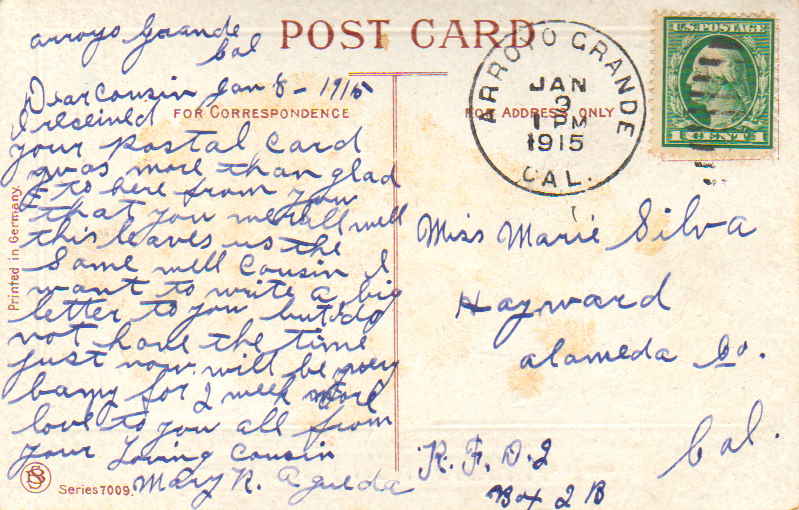 arroyo Grande
Cal
POST CARD
Dear Cousin Jan 8 - 1915
FOR CORRESPONDENCE
I received
your Postal Card
was more than glad
to here from you
that you were all well
this leaves us the
Same well Cousin I
want to write a big
letter to you but do
not have the time
just now will be very
for 2 week more
love to you all from
your Loving Cousin
Mary R. Agueda
Printed in Germany
Series 7009.
FOR ADDRESS ONLY
ARROYO GRANDE
JAN
3
1 PM
1915
CAL.
U.S. POSTAGE
1 CENT 1
Miss Marie Silva
Hayward
alameda Co.
Cal.
R. F. D. 2
Box 2 B